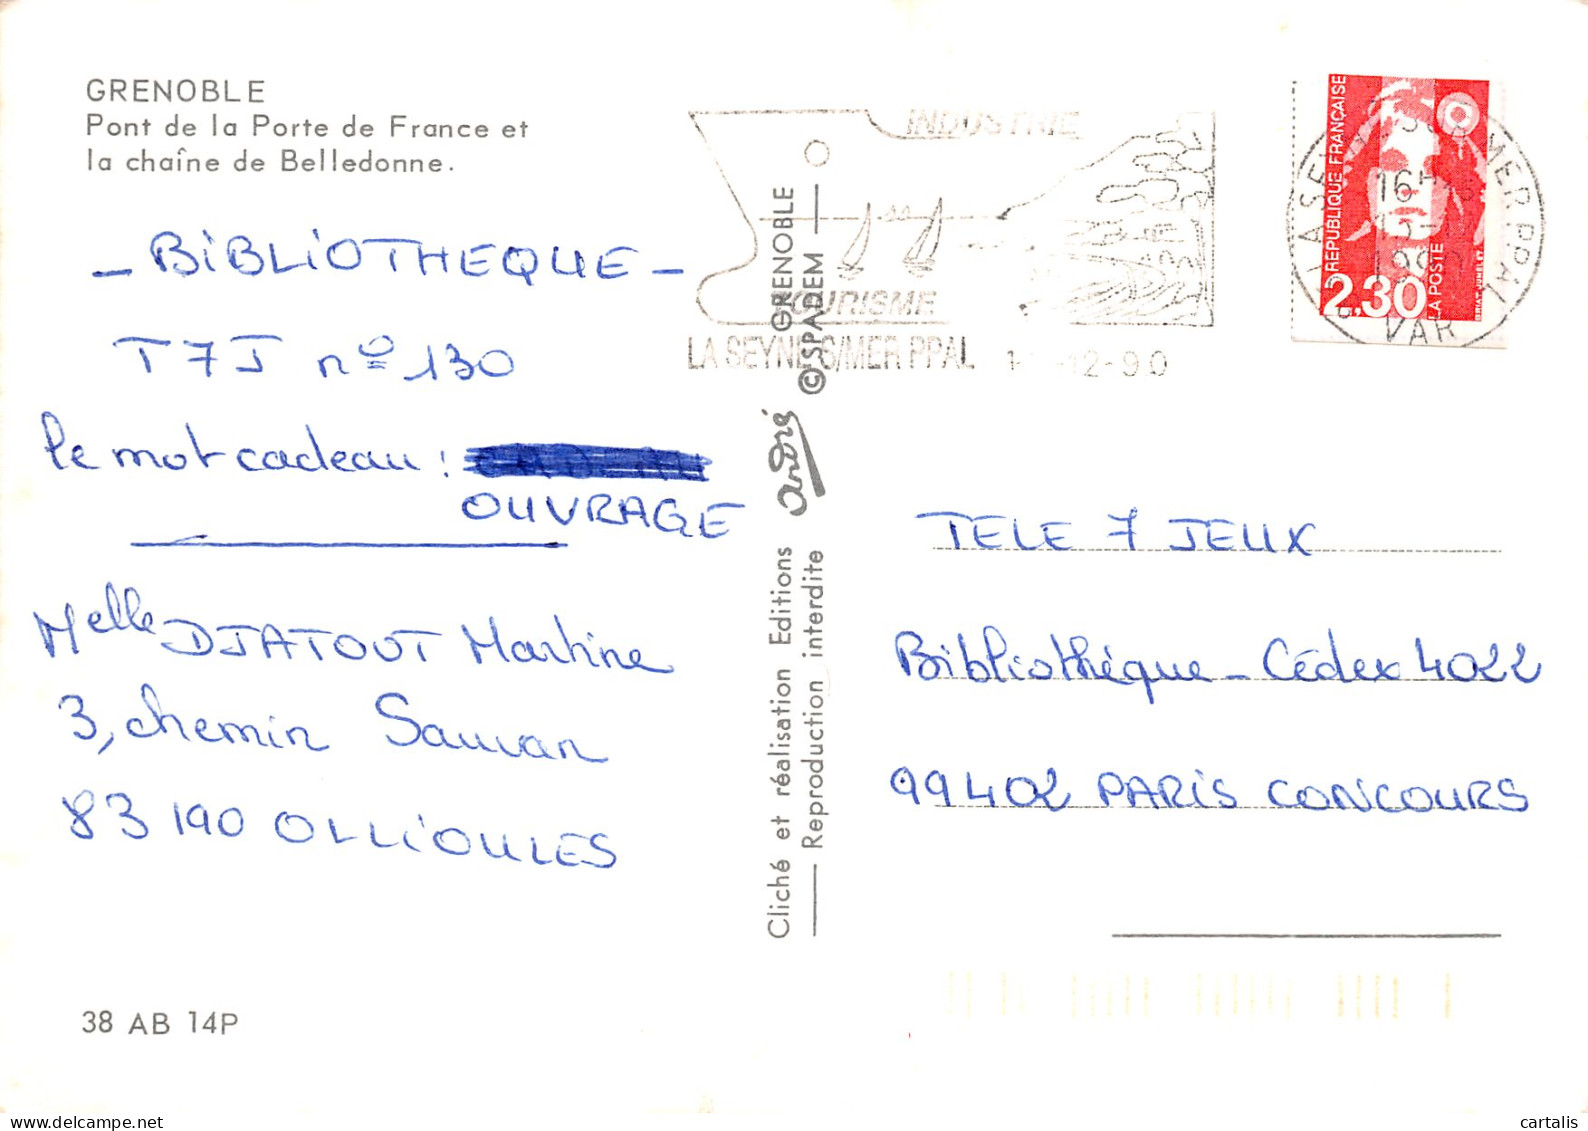 GRENOBLE
Pont de la Porte de France et
la chaîne de Belledonne.
- BIBLIOTHEQUE -
T7J nº 130
le mot cadeau :
OUVRAGE
Melle DJATOUT Martine
3, chemin Sauvan
83190 OLLIOULES
38 AB 14P
Cliché et réalisation Editions André GRENOBLE
Reproduction interdite © SPADEM
INDUSTRIE
TOURISME
LA SEYNE S/MER PPAL -12-90
RÉPUBLIQUE FRANÇAISE
2,30
LA POSTE
LA SEYNE SUR MER PPAL
16H
VAR
TELE 7 JEUX
Bibliothéque - Cédex 4022
99402 PARIS CONCOURS
cartalis
delcampe.net